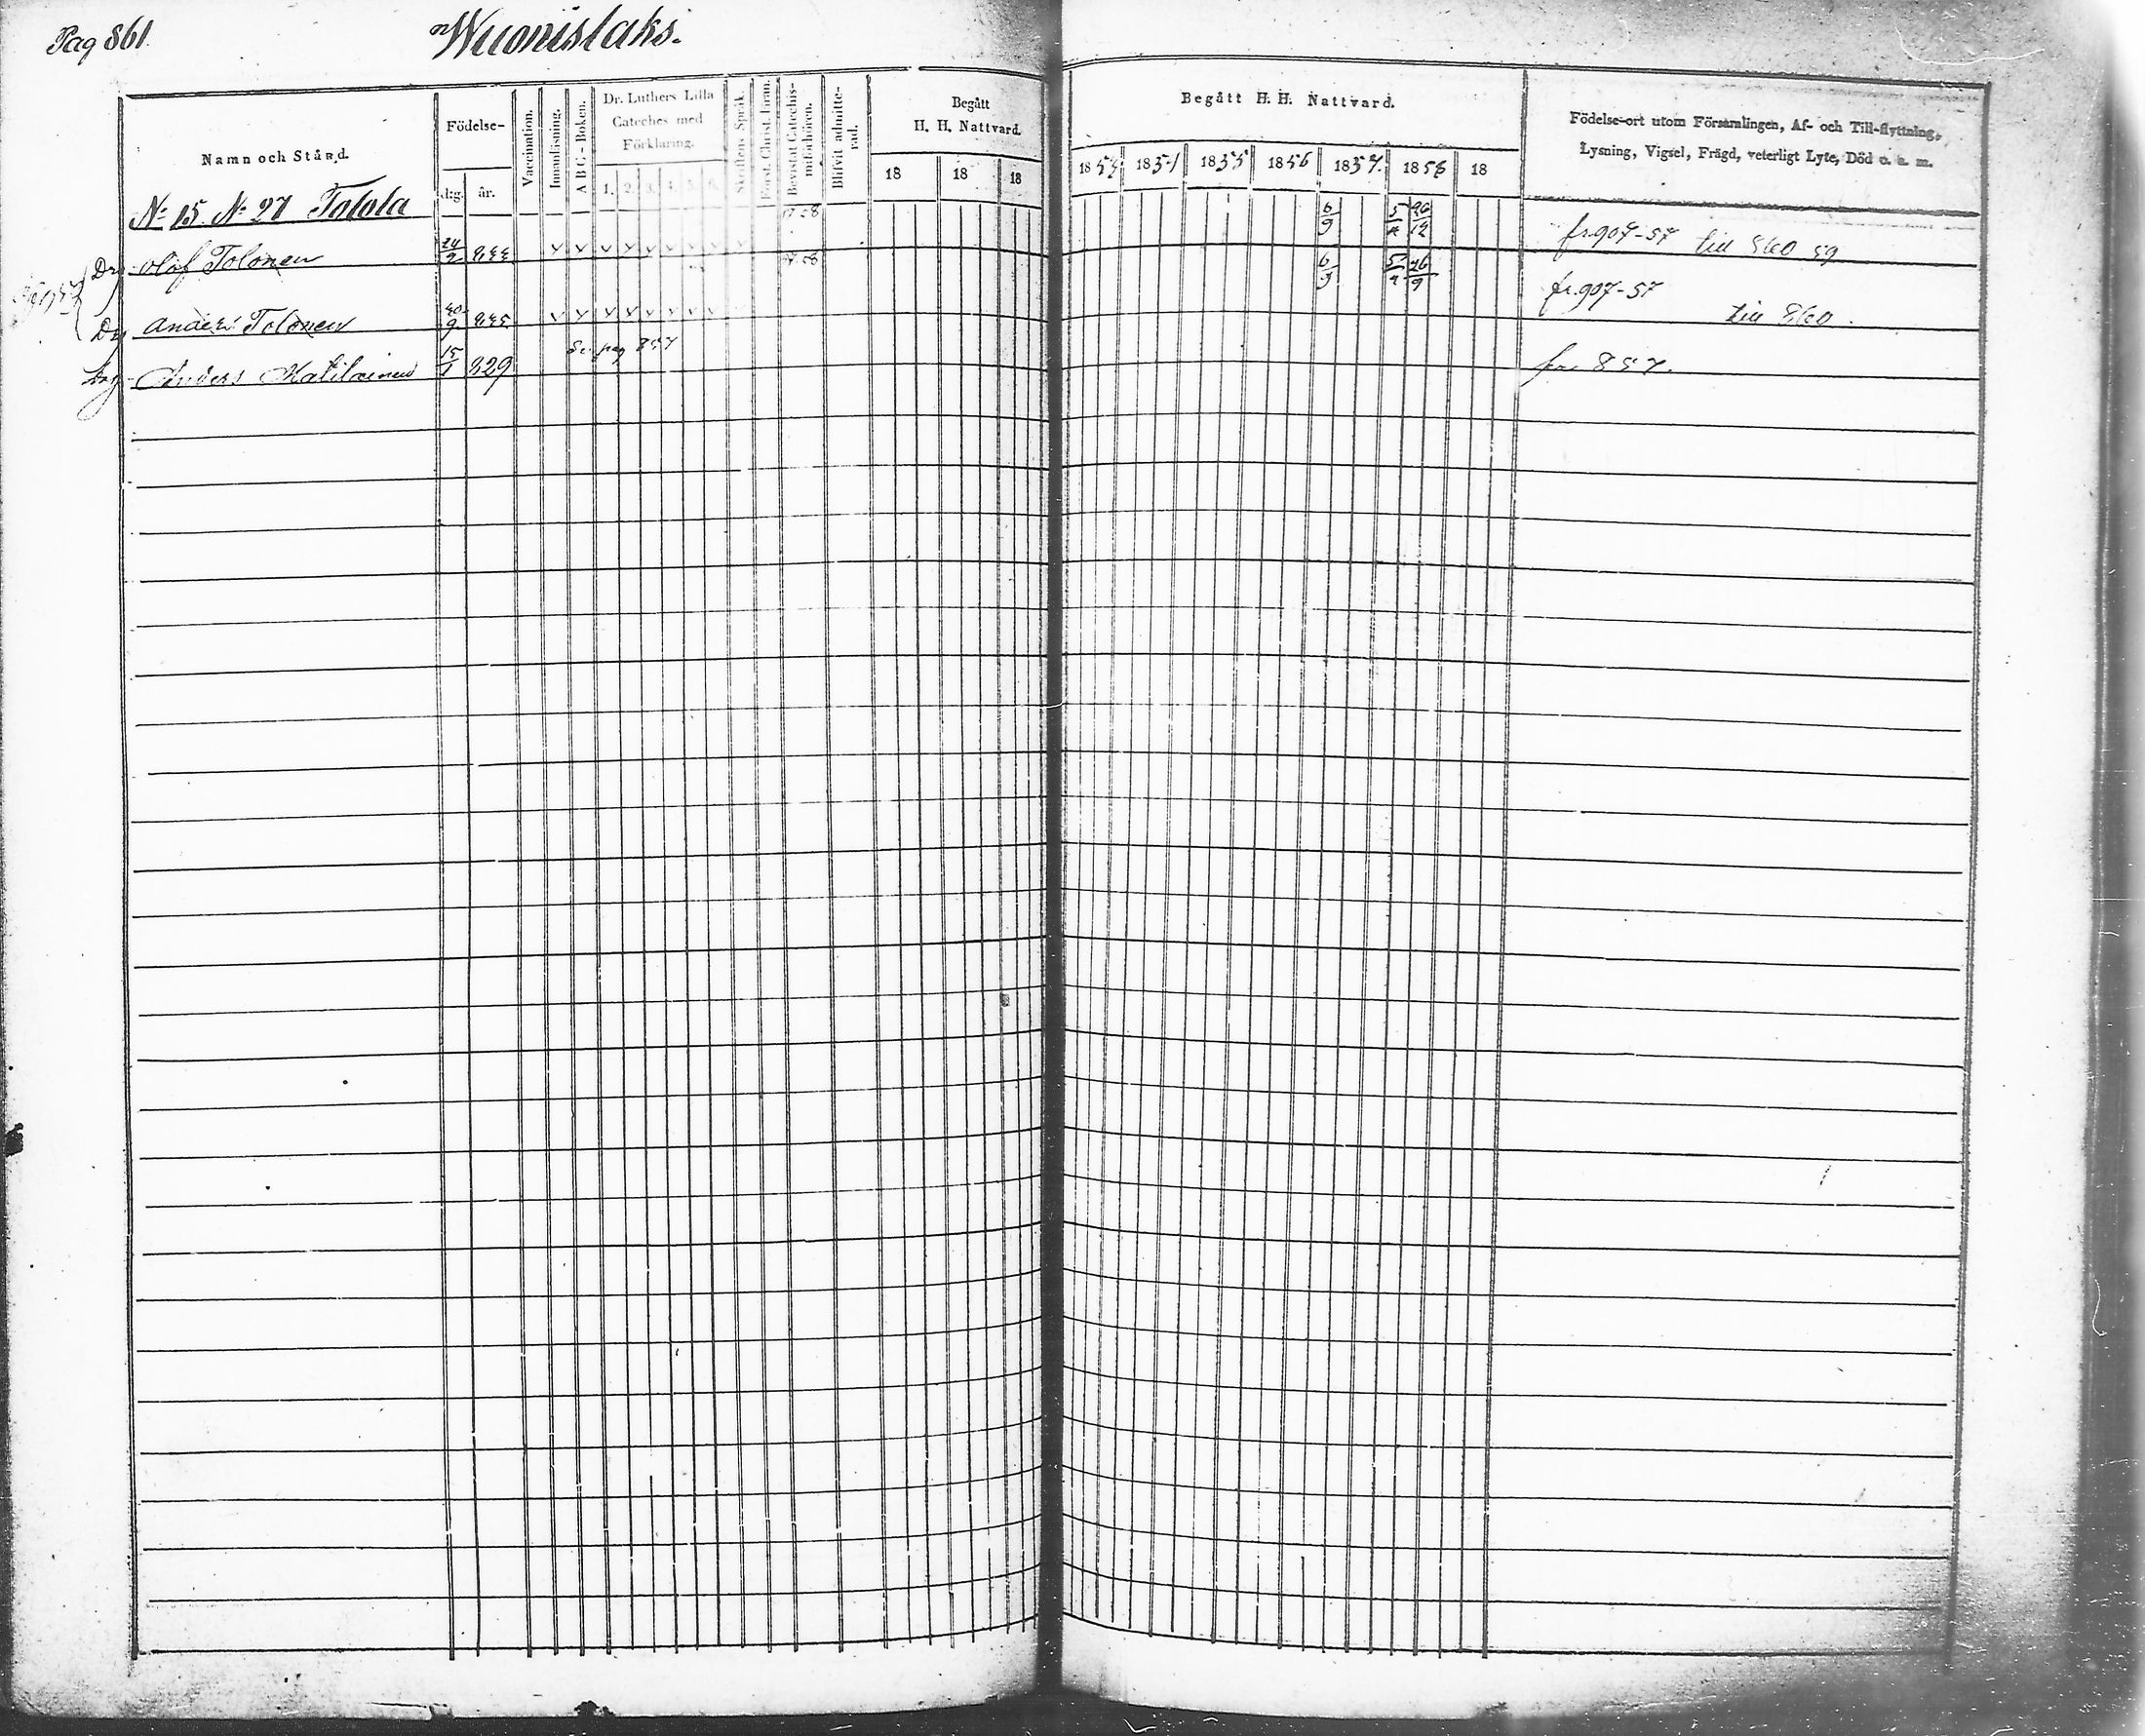 Pag 861
Wuonislaks.
Namn och Stånd.
Födelse-
dag.
år.
Vaccination.
Innanläsning.
A B C - Boken.
Dr. Luthers Lilla
Cateches med
Förklaring.
1. 2. 3. 4. 5. 6.
Skriftens Språk.
Först. Christ. läran.
Bevistat Catechis-
miförhören.
Blifvit admitte-
rad.
Begått
H. H. Nattvard.
18 18 18
Begått H. H. Nattvard.
1855 1856 1857. 1858 18
Födelse-ort utom Församlingen, Af- och Till-flyttning,
Lysning, Vigsel, Frägd, veterligt Lyte, Död o. s. m.
No 15 No 27 Tolola
Dr Olof Tolonen v v v v v v v v 6/9 fr. 907-57 till 860 59
Dr Anders Tolonen v v v v v v v v 6/9 fr. 907-57 till 860.
Anders Matilainen 15/1 829 Se pag 857 fr. 857.